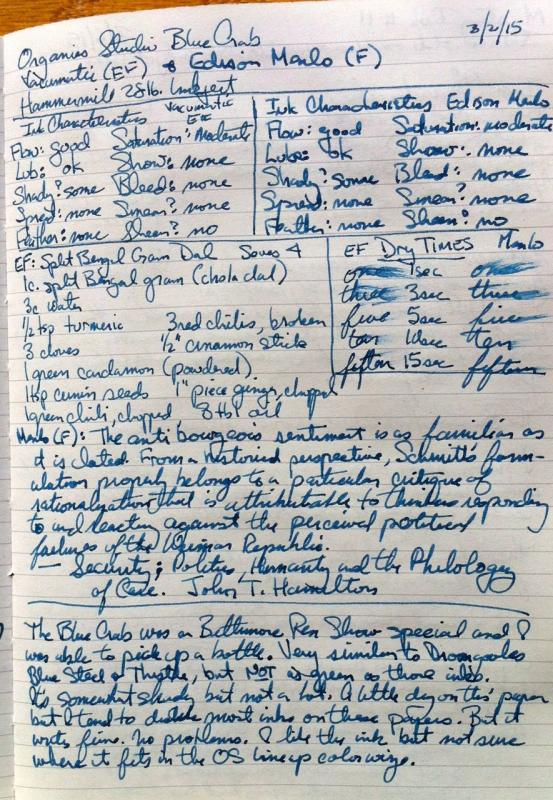 3/2/15
Organics Studio Blue Crab
Vacumatic (EF) & Edison Menlo (F)
Hammermill 28 lb. Inkjet
Ink Characteristics Vacumatic
Flow: good Saturation: moderate
Lub: ok Show: none
Shady? some Bleed: none
Spread: none Smear? none
Feather: none Sheen? no
Ink Characteristics Edison Menlo
Flow: good Saturation: moderate
Lube: ok Show: none
Shady? some Bleed: none
Spread: none Smear? none
Feather: none Sheen? no
EF: Split Bengal Gram Dal Serves 4
1c. split Bengal gram (chola dal)
3c water
1/2 tsp turmeric 3 red chilis, broken
3 cloves 1/2" cinnamon stick
1 green cardamon (powdered)
1 tsp cumin seeds 1" piece ginger, chopped
1 green chili, chopped 8 tbl oil
EF Dry Times Menlo
one 1sec one
three 3sec three
five 5sec five
ten 10sec ten
fifteen 15sec fifteen
Menlo (F): The anti bourgeois sentiment is as familiar as
it is dated. From a historical perspective, Schmitt's form-
ulation properly belongs to a particular critique of
rationalization that is attributable to thinkers responding
to and reacting against the perceived political
failures of the Weimar Republic.
— Security; Politics, Humanity and the Philology
of Care. John T. Hamilton
The Blue Crab was a Baltimore Pen Show special and I
was able to pick up a bottle. Very similar to Dromgooles
Blue Steel & Thistle, but NOT as green as those inks.
It's somewhat shady but not a lot. A little dry on this paper
but I tend to dislike most inks on these papers. But it
writes fine. No problems. I like the ink but not sure
where it fits in the OS lineup colorwise.